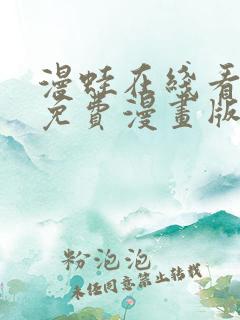 漫蛙在綫看
免費漫畫版
粉泡泡
未經同意禁止轉載